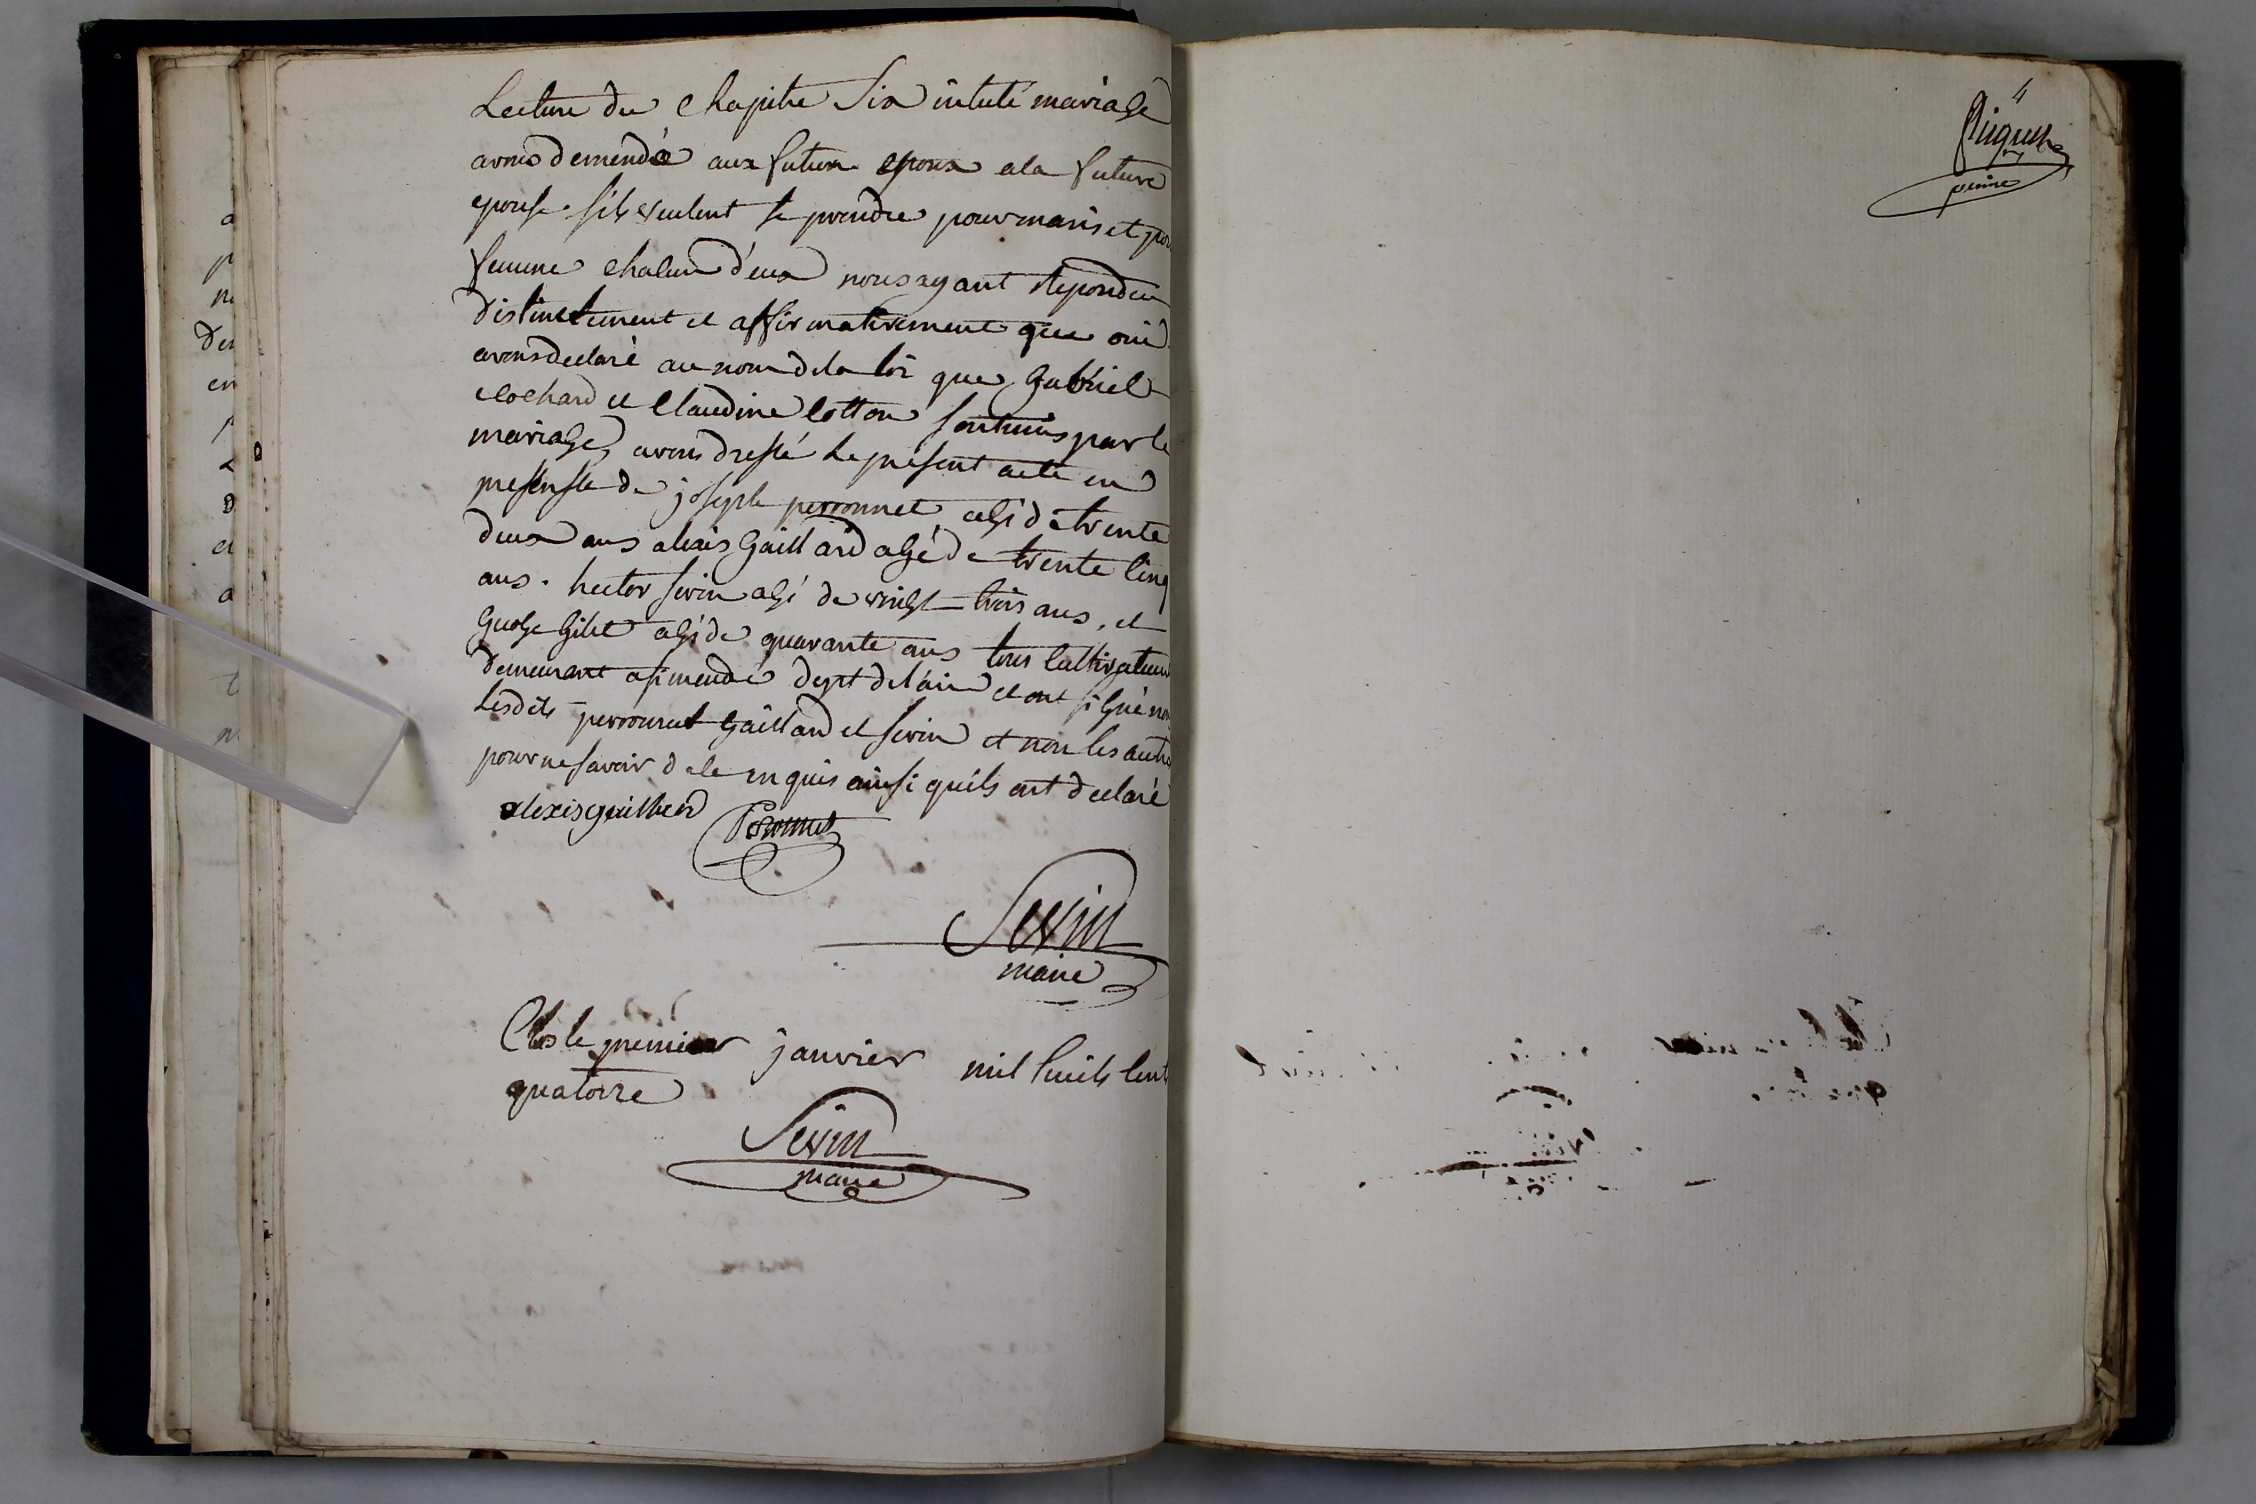 Lecture du Chapitre Six intulé mariage
avons demendé aux future epoux ala future
epouse s'ils veulent se prendre pour maris et pour
femme chacun d'eux nous ayant Repondu
distinctement et affirmativement que oui
avons declaré au nom de la loi que Gabriel
cochard et Claudine Cotton sont unis par le
mariage, avons dressé le present acte en
presensse de joseph perronnet agé de trente
deux ans alexis Gaillard agé de trente cinq
ans. hector sevin agé de vingt-trois ans, et
Gilet agé de quarante ans tous cultivateurs
demeurant a simendre dept de l'ain et ont signé
Lesdits perronnet Gaillard et sevin et non les autres
pour ne savoir de ce enquis ainsi quils ont declaré
alexis guillierd Peronnet
Sevin
maire
Clos le premier janvier mil huit cent
quatorze
Sevin
maire
4